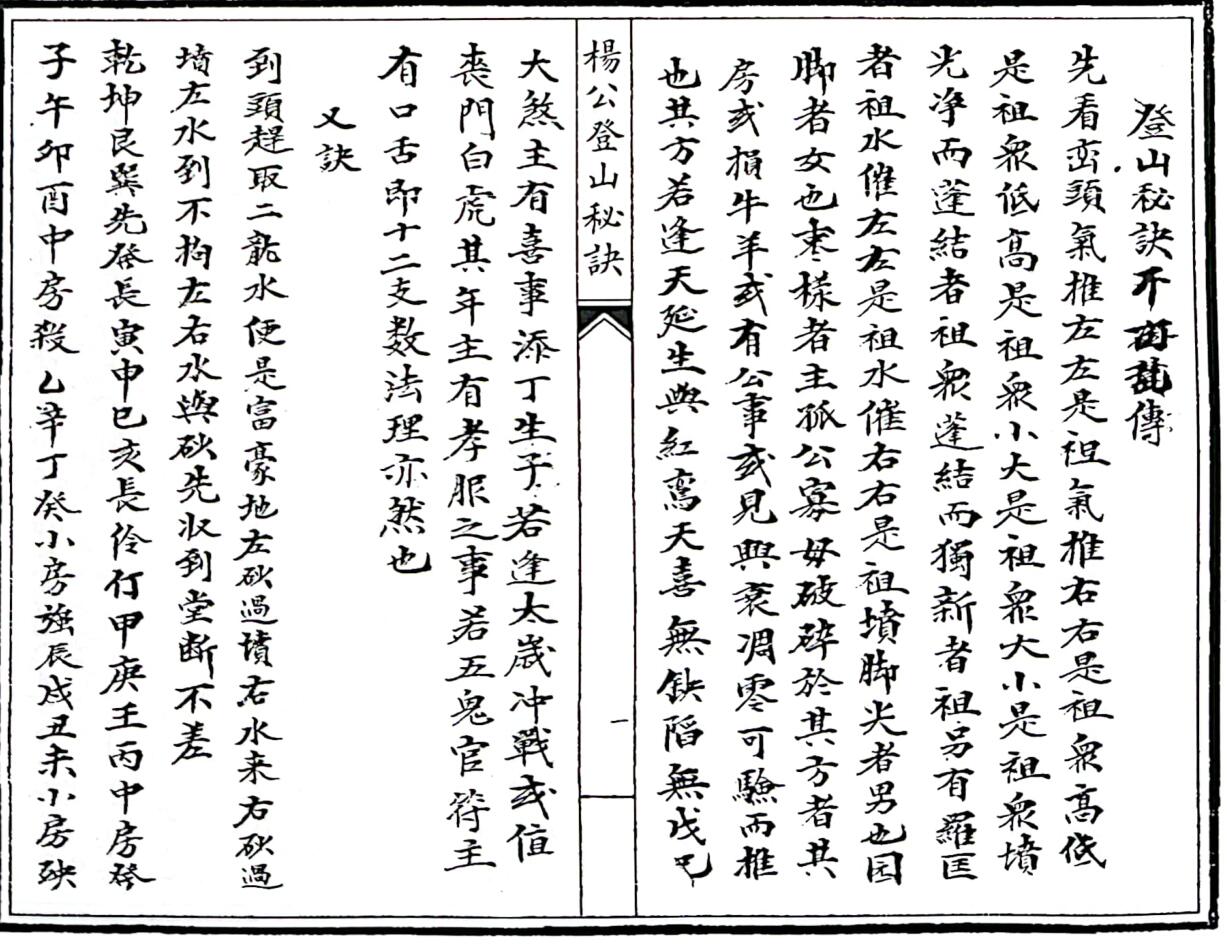 登山秘訣不可亂傳
先看巒頭氣推左左是祖氣推右右是祖衆高低
是祖衆低高是祖衆小大是祖衆大小是祖衆墳
光净而蓬結者祖衆蓬結而獨新者祖另有羅匡
者祖水催左左是祖水催右右是祖墳脚尖者男也园
脚者女也枣樣者主孤公寡母破碎於其方者其
房或損牛羊或有公事或見興衰凋零可驗而推
也其方若逢天延生與紅鸞天喜無缺陷無戊己
楊公登山秘訣
一
大煞主有喜事添丁生子若逢太歲冲戰或值
喪門白虎其年主有孝服之事若五鬼官符主
有口舌即十二支数法理亦然也
又訣
到頭趕取二龍水便是富豪地左砂過墳右水来右砂過
墳左水到不拘左右水與砂先收到堂断不差
乾坤艮巽先發長寅申巳亥長伶仃甲庚壬丙中房發
子午卯酉中房殺乙辛丁癸小房強辰戌丑未小房殃